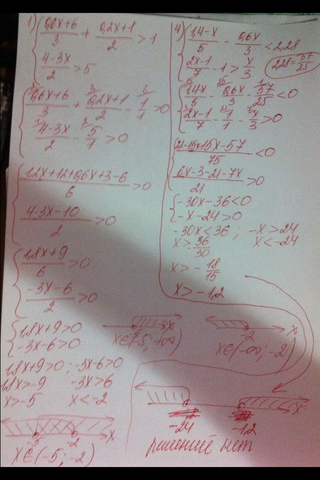 1) { (0,6x+6)/3 + (0,2x+1)/2 > 1
(4-3x)/2 > 5
{ (0,6x+6)/3 + (0,2x+1)/2 - 1/1 > 0
(4-3x)/2 - 5/1 > 0
{ (1,2x+12+0,6x+3-6)/6 > 0
(4-3x-10)/2 > 0
{ (1,8x+9)/6 > 0
(-3x-6)/2 > 0
{ 1,8x+9>0
-3x-6>0
1,8x+9>0 ; -3x-6>0
1,8x>-9 -3x>6
x>-5 x<-2
-5 -2 x
x∈(-5;-2)
x∈(-5;+∞)
x∈(-∞;-2)
4) { (1,4-x)/5 - 0,6x/3 < 2,28
(2x-1)/7 - 1 > x/3
2,28=57/25
{ (1,4-x)/5 - 0,6x/3 - 57/25 < 0
(2x-1)/7 - 1/1 - x/3 > 0
(21-15x-15x-57)/75 < 0
(6x-3-21-7x)/21 > 0
{ -30x-36<0
-x-24>0
-30x<36 ; -x>24
x>36/30 x<-24
x>-18/15
x>-1,2
-24 -1,2 x
решений нет